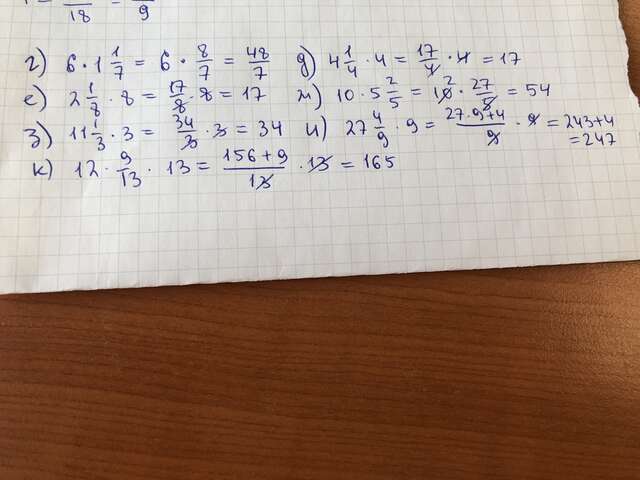 18 = 9
г) 6 · 1 1/7 = 6 · 8/7 = 48/7 д) 4 1/4 · 4 = 17/4 · 4 = 17
е) 2 1/8 · 8 = 17/8 · 8 = 17 м) 10 · 5 2/5 = 10 2 · 27/5 = 54
з) 11 1/3 · 3 = 34/3 · 3 = 34 и) 27 4/9 · 9 = 27·9+4/9 · 9 = 243+4
= 247
к) 12 · 9/13 · 13 = 156+9/13 · 13 = 165